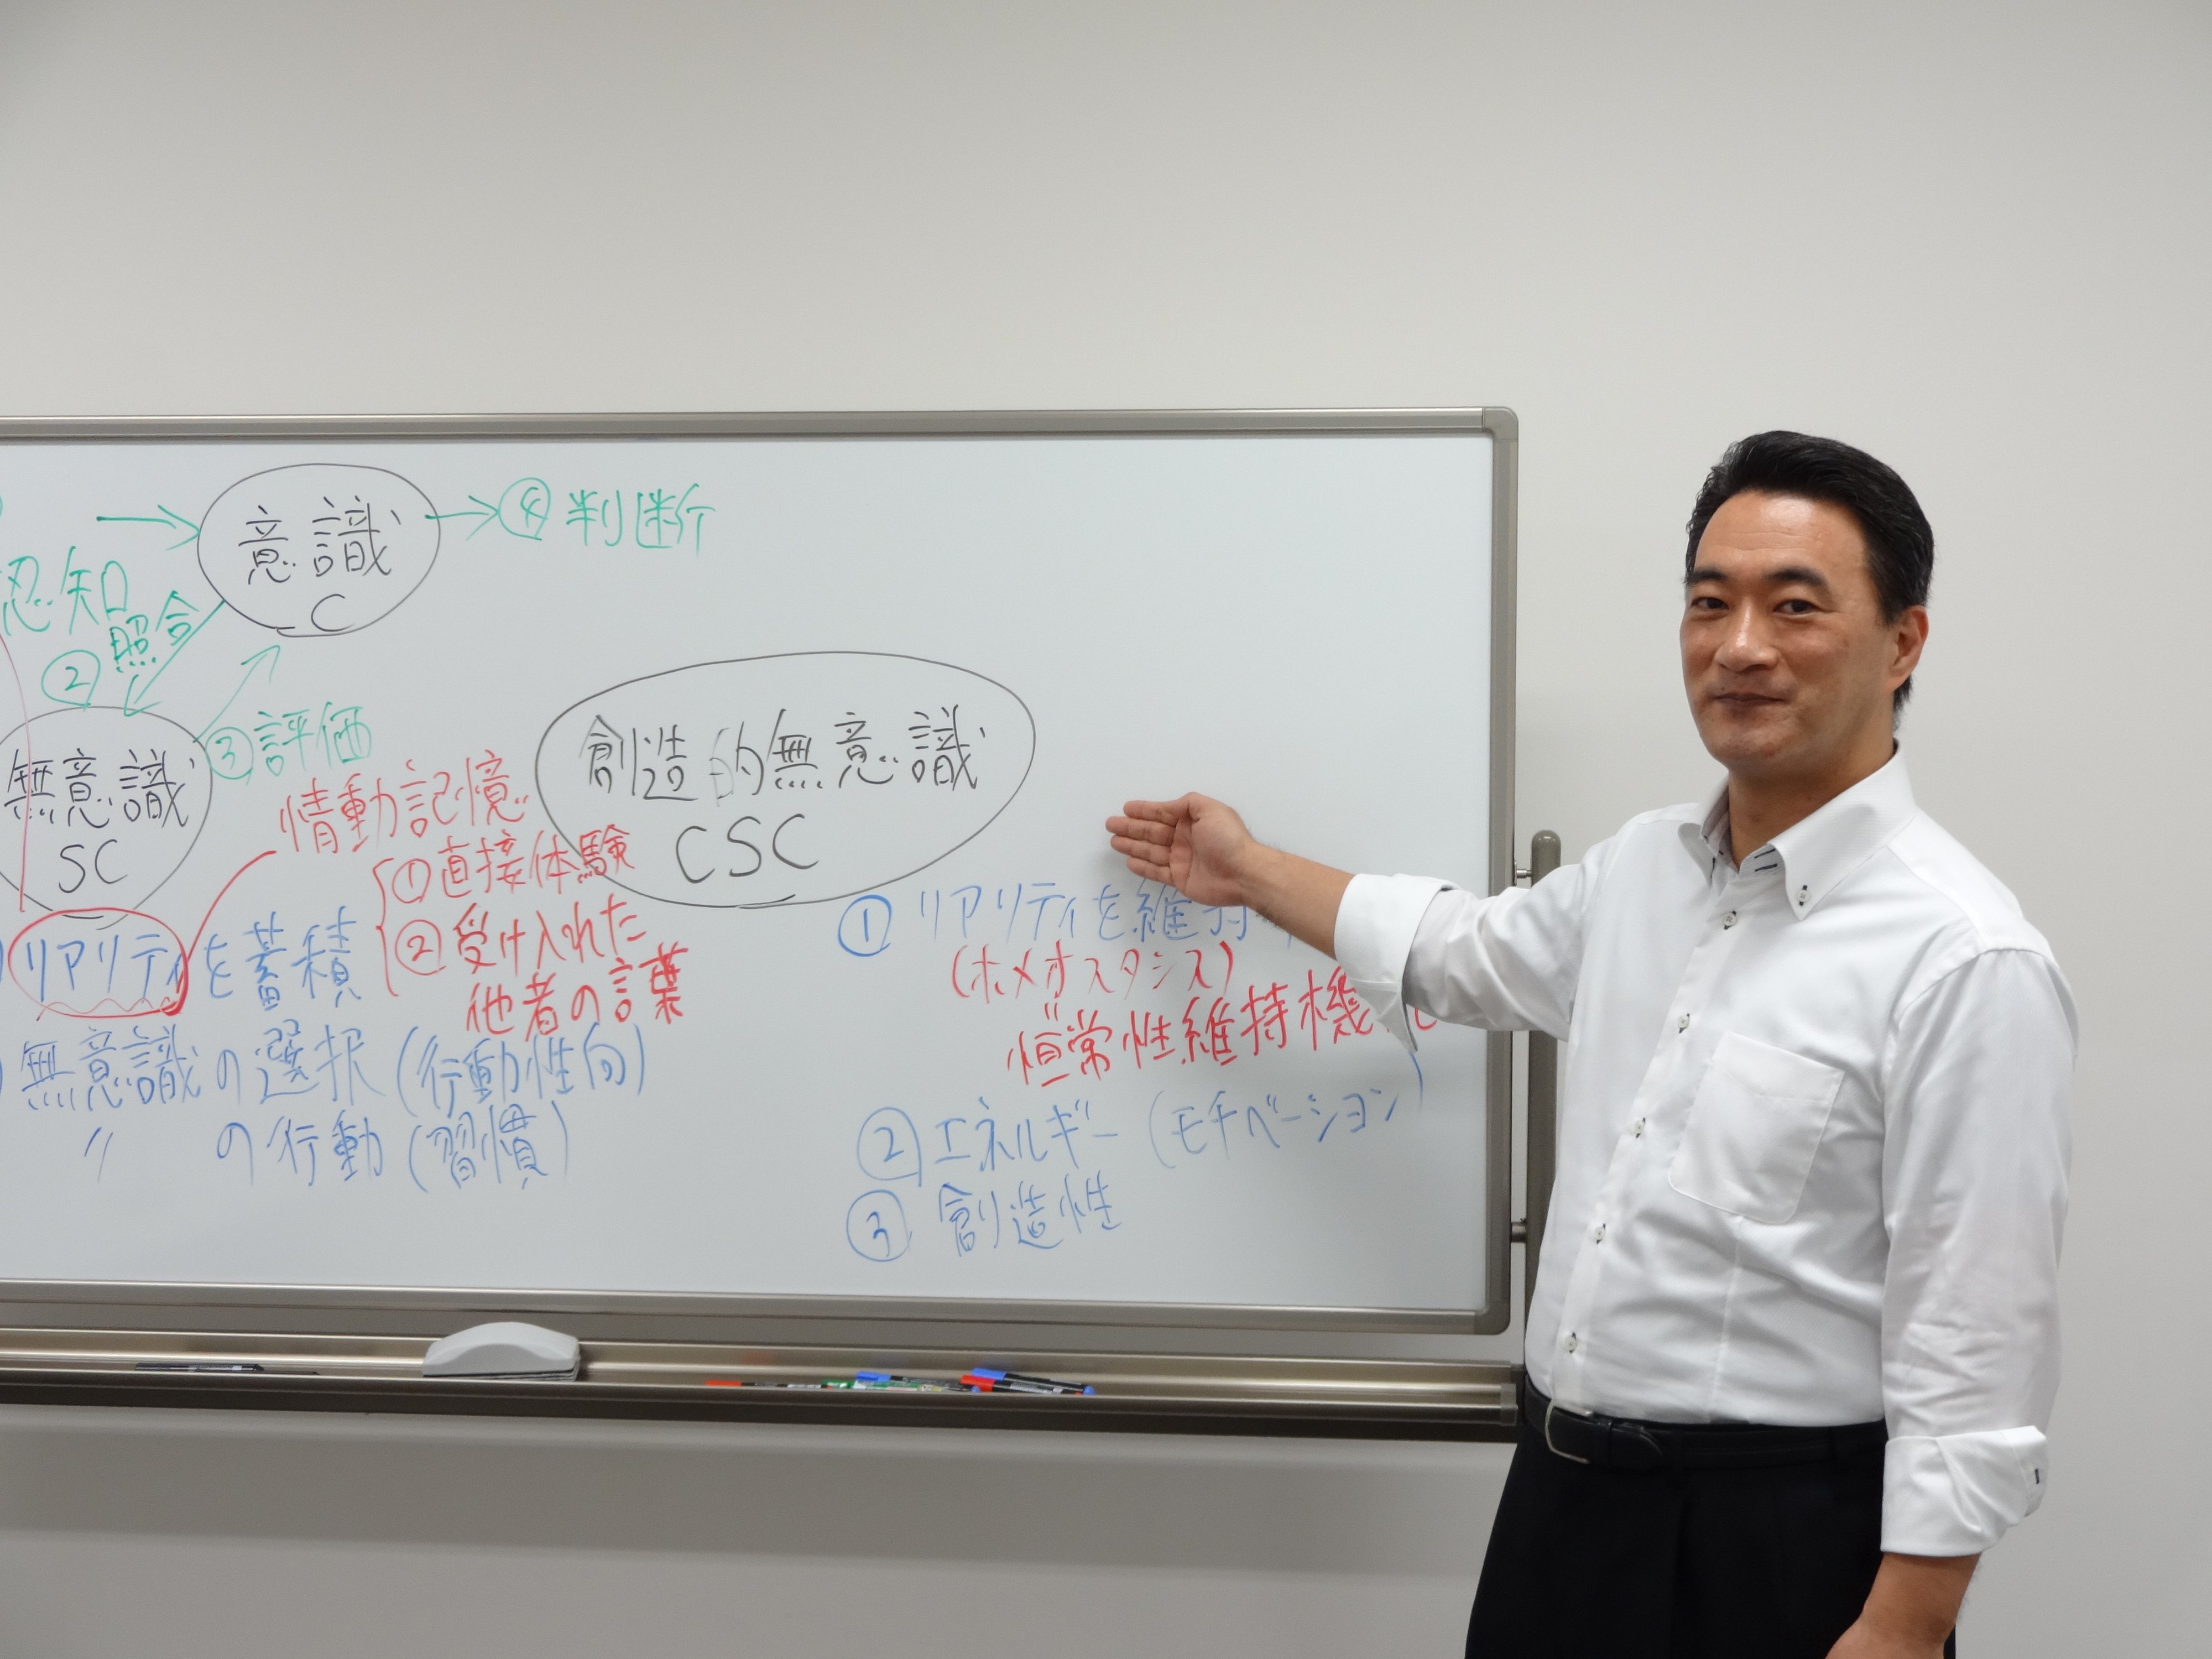 意識
C
④ 判断
認知
② 照合
③ 評価
無意識
SC
情動記憶
① 直接体験
② 受け入れた
他者の言葉
リアリティを蓄積
無意識の選択(行動性向)
〃 の行動(習慣)
創造的無意識
CSC
① リアリティを維持
(ホメオスタシス)
恒常性維持機
② エネルギー(モチベーション)
③ 創造性